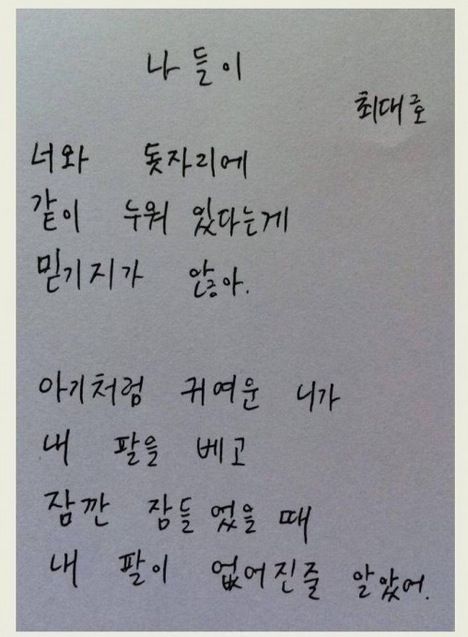 나들이
최대호
너와 돗자리에
같이 누워 있다는게
믿기지가 않아.
아기처럼 귀여운 니가
내 팔을 베고
잠깐 잠들었을 때
내 팔이 없어진줄 알았어.